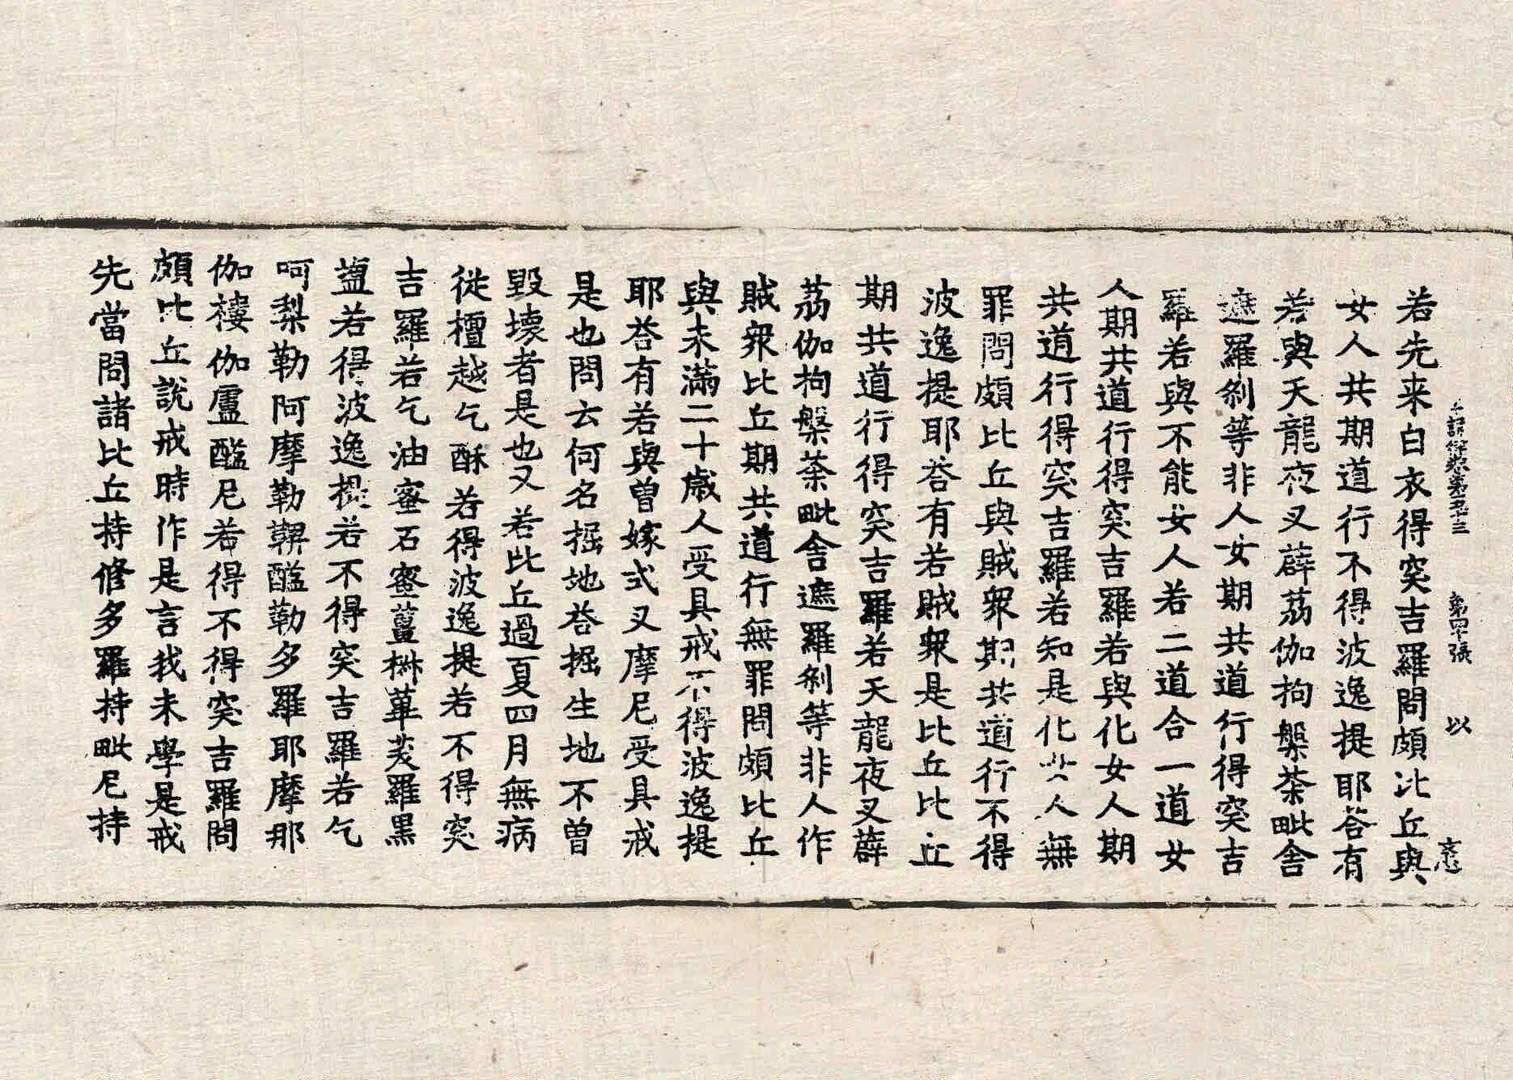 十誦律卷第五十三 第四十張 以
若先来白衣得突吉羅問頗比丘與
女人共期道行不得波逸提耶荅有
若與天龍夜叉薜荔伽拘槃茶毗舍
遮羅剎等非人女期共道行得突吉
羅若與不能女人若二道合一道女
人期共道行得突吉羅若與化女人期
共道行得突吉羅若知是化女人無
罪問頗比丘與賊衆期共道行不得
波逸提耶荅有若賊衆是比丘比丘
期共道行得突吉羅若天龍夜叉薜
荔伽拘槃茶毗舍遮羅剎等非人作
賊衆比丘期共道行無罪問頗比丘
與未滿二十歲人受具戒不得波逸提
耶荅有若與曾嫁式叉摩尼受具戒
是也問云何名掘地荅掘生地不曾
毀壞者是也又若比丘過夏四月無病
從檀越乞酥若得波逸提若不得突
吉羅若乞油蜜石蜜薑椒蓽茇羅黑
盬若得波逸提若不得突吉羅若乞
呵梨勒阿摩勒鞞醯勒多羅耶摩那
伽樓伽盧醯尼若得不得突吉羅問
頗比丘說戒時作是言我未學是戒
先當問諸比丘持修多羅持毗尼持